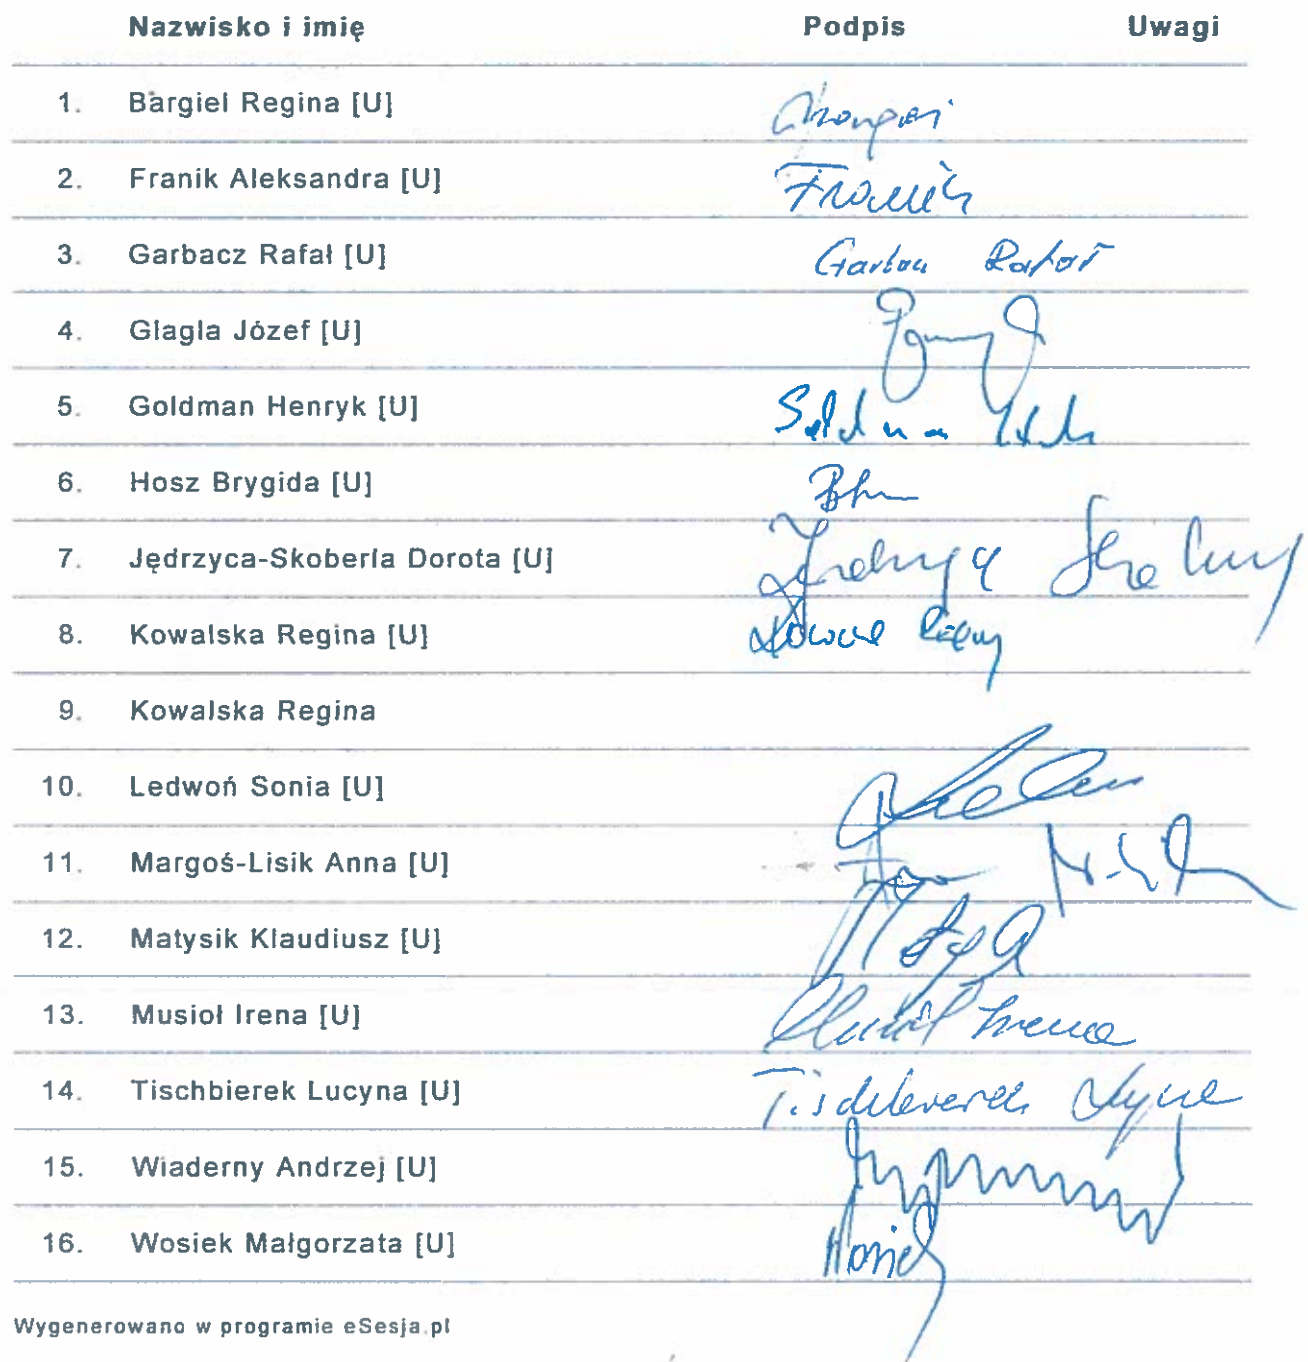 Nazwisko i imię Podpis Uwagi
1. Bargiel Regina [U]
2. Franik Aleksandra [U] Franik
3. Garbacz Rafał [U] Garbacz Rafał
4. Glagla Józef [U]
5. Goldman Henryk [U]
6. Hosz Brygida [U]
7. Jędrzyca-Skoberla Dorota [U]
8. Kowalska Regina [U]
9. Kowalska Regina
10. Ledwoń Sonia [U]
11. Margoś-Lisik Anna [U]
12. Matysik Klaudiusz [U]
13. Musioł Irena [U] Musioł Irena
14. Tischbierek Lucyna [U] Tischbierek Lucyna
15. Wiaderny Andrzej [U]
16. Wosiek Małgorzata [U] Wosiek
Wygenerowano w programie eSesja.pl